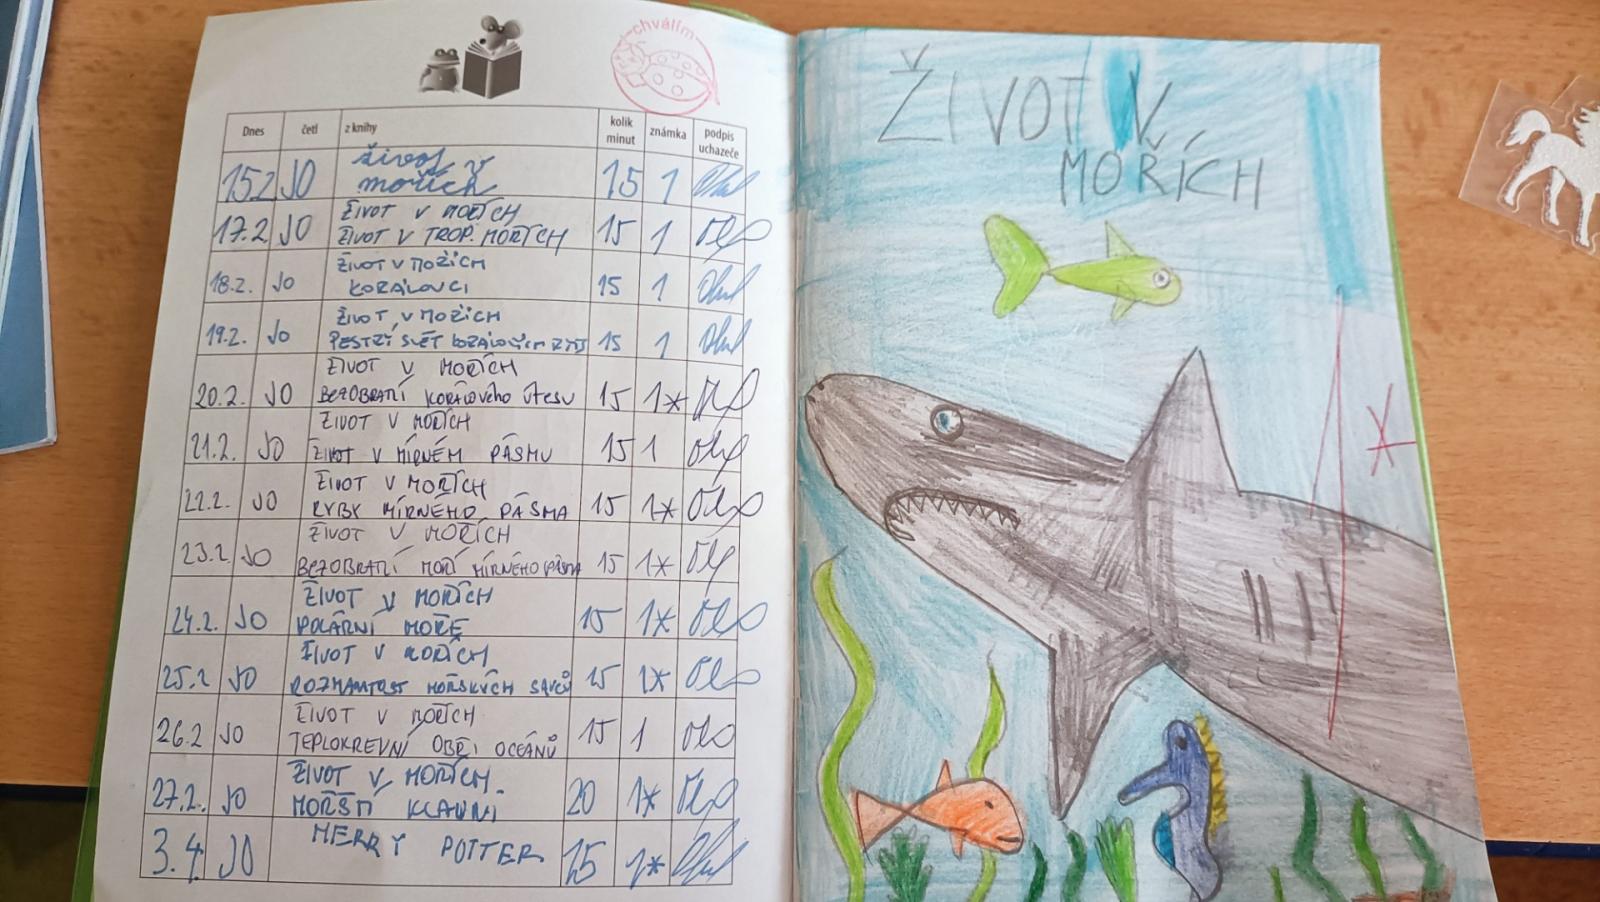 chválím
Dnes četl z knihy kolik minut známka podpis uchazeče
15.2 JO život v mořích 15 1
17.2 JO ŽIVOT V MOŘÍCH
ŽIVOT V TROP. MOŘÍCH 15 1
18.2. JO ŽIVOT V MOŘÍCH
KORÁLOVCI 15 1
19.2. JO ŽIVOT V MOŘÍCH
PESTRÝ SVĚT KORÁLOVÝCH RYB 15 1
20.2. JO ŽIVOT V MOŘÍCH
BEZOBRATLÍ KORÁLOVÉHO ÚTESU 15 1*
21.2. JO ŽIVOT V MOŘÍCH
ŽIVOT V MÍRNÉM PÁSMU 15 1
22.2. JO ŽIVOT V MOŘÍCH
RYBY MÍRNÉHO PÁSMA 15 1*
23.2 JO ŽIVOT V MOŘÍCH
BEZOBRATLÍ MOŘÍ MÍRNÉHO PÁSMA 15 1*
24.2. JO ŽIVOT V MOŘÍCH
POLÁRNÍ MOŘE 15 1*
25.2 JO ŽIVOT V MOŘÍCH
ROZMANITOST MOŘSKÝCH SAVCŮ 15 1*
26.2 JO ŽIVOT V MOŘÍCH
TEPLOKREVNÍ OBŘI OCEÁNŮ 15 1
27.2. JO ŽIVOT V MOŘÍCH
MOŘŠTÍ 20 1*
3.4. JO HERRY POTTER 15 1*
ŽIVOT V
MOŘÍCH